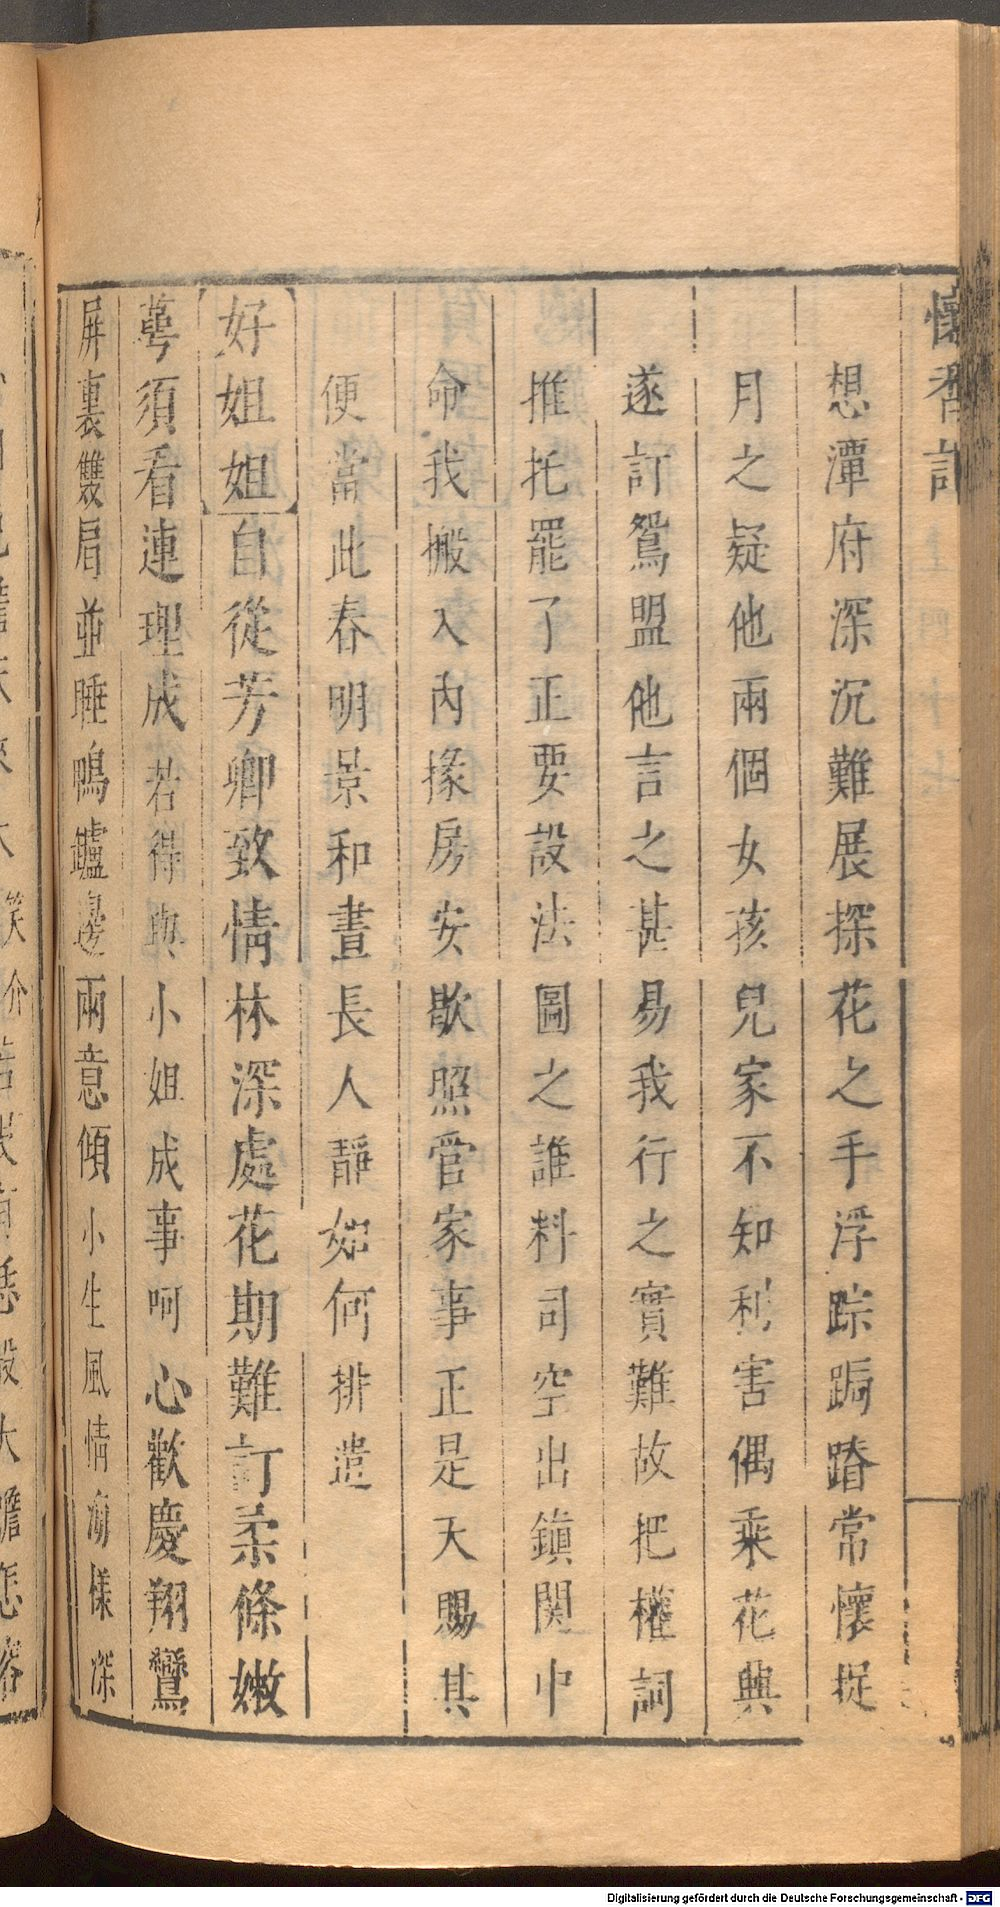 懷香記
想潭府深沉難展探花之手浮踪跼蹐常懷捉
月之疑他兩個女孩兒家不知利害偶乘花興
遂訂鴛盟他言之甚易我行之實難故把權詞
推托罷了正要設法圖之誰料司空出鎮関中
命我搬入內掾房安歇照管家事正是天賜其
便當此春明景和晝長人靜如何排遣
好姐姐自從芳卿致情林深處花期難訂柔條嫩
萼須看連理成若得與小姐成事呵心歡慶翔鸞
屏裏雙肩並睡鴨鑪邊兩意傾小生風情海樣深
Digitalisierung gefördert durch die Deutsche Forschungsgemeinschaft - DFG